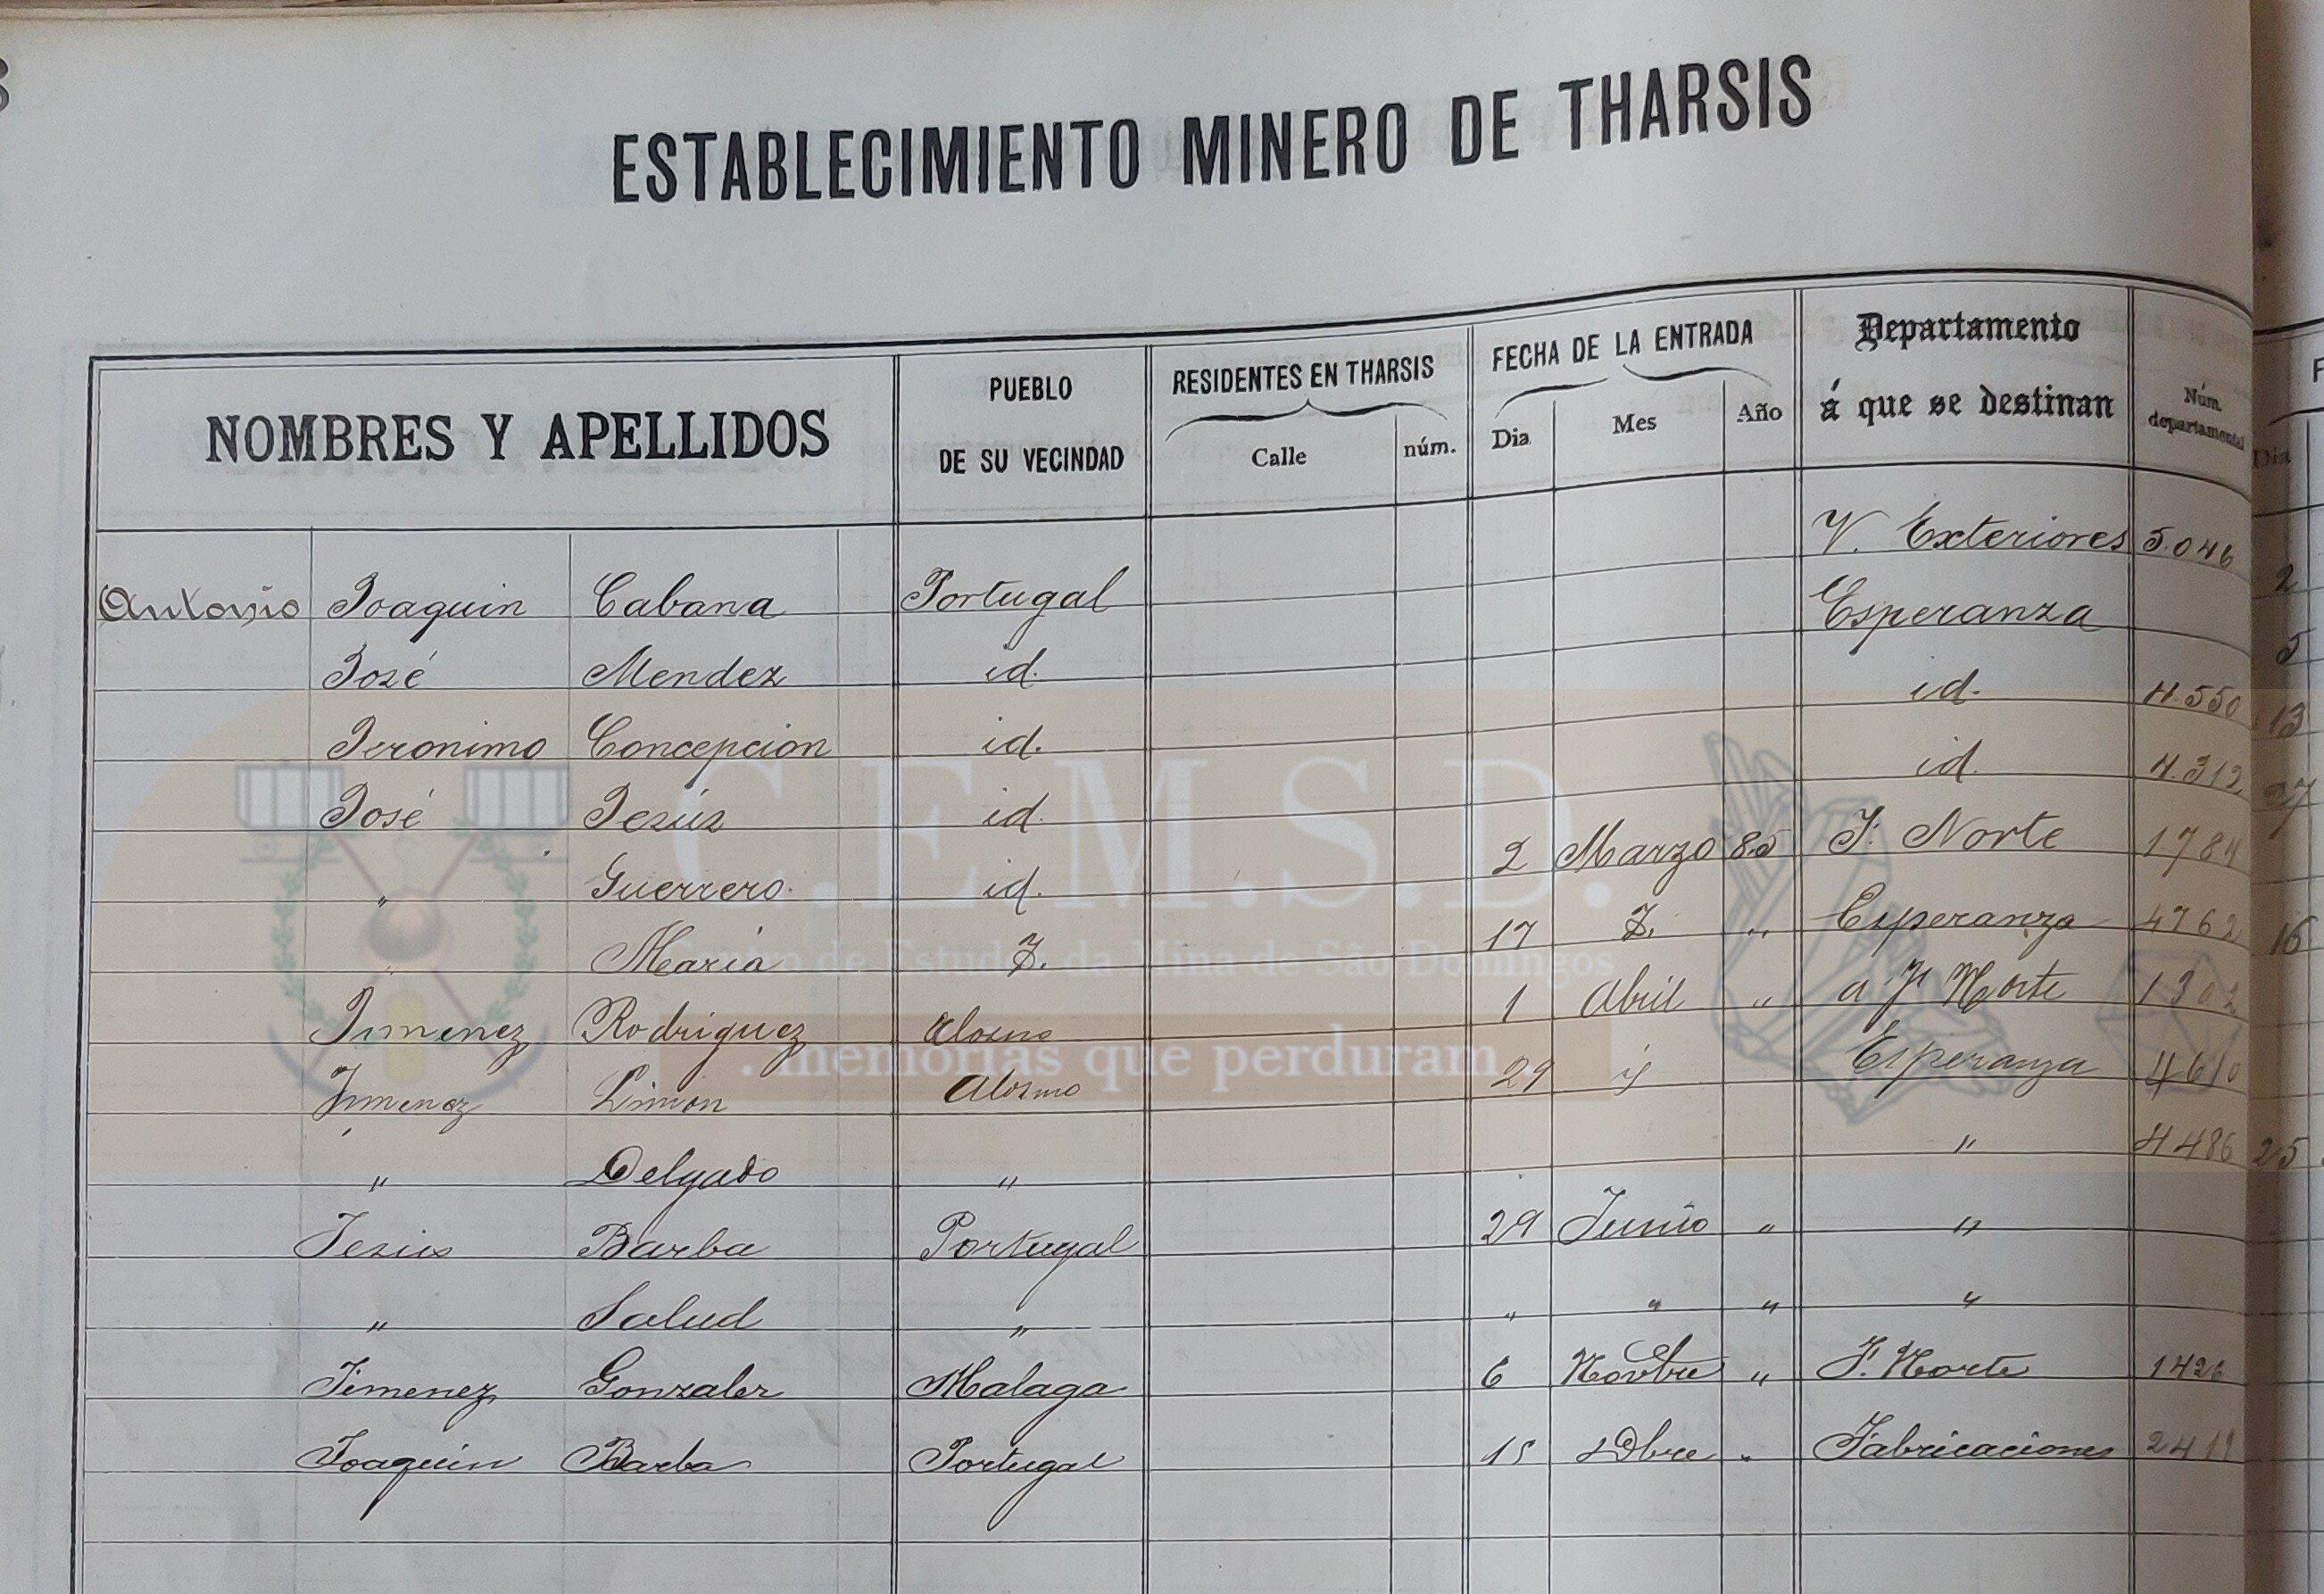 ESTABLECIMIENTO MINERO DE THARSIS
NOMBRES Y APELLIDOS
PUEBLO
DE SU VECINDAD
RESIDENTES EN THARSIS
Calle
núm.
FECHA DE LA ENTRADA
Dia
Mes
Año
Departamento
á que se destinan
Núm.
departamental
Dia
Antonio Joaquin Cabana Portugal V. Exteriores 5.046 2
José Mendez id. Esperanza 5
Jeronimo Concepcion id. id. 4.550 13
José Jesús id. id. 4.312 27
" Guerrero id. 2 Marzo 85 F. Norte 1784
" Maria 17 " Esperanza 4762 16
Jimenez Rodriguez Alosno 1 Abril " a Fn Norte 1302
Jimenez Limon Alosno 29 Esperanza 4610
" Delgado " " 4486 25
Jesus Barba Portugal 29 Junio " "
" Salud " " " " "
Jimenez Gonzalez Malaga 6 Novbre " F. Norte 1426
Joaquin Barba Portugal 15 Dbre " Fabricaciones
C.E.M.S.D.
Centro de Estudos da Mina de São Domingos
...memórias que perduram